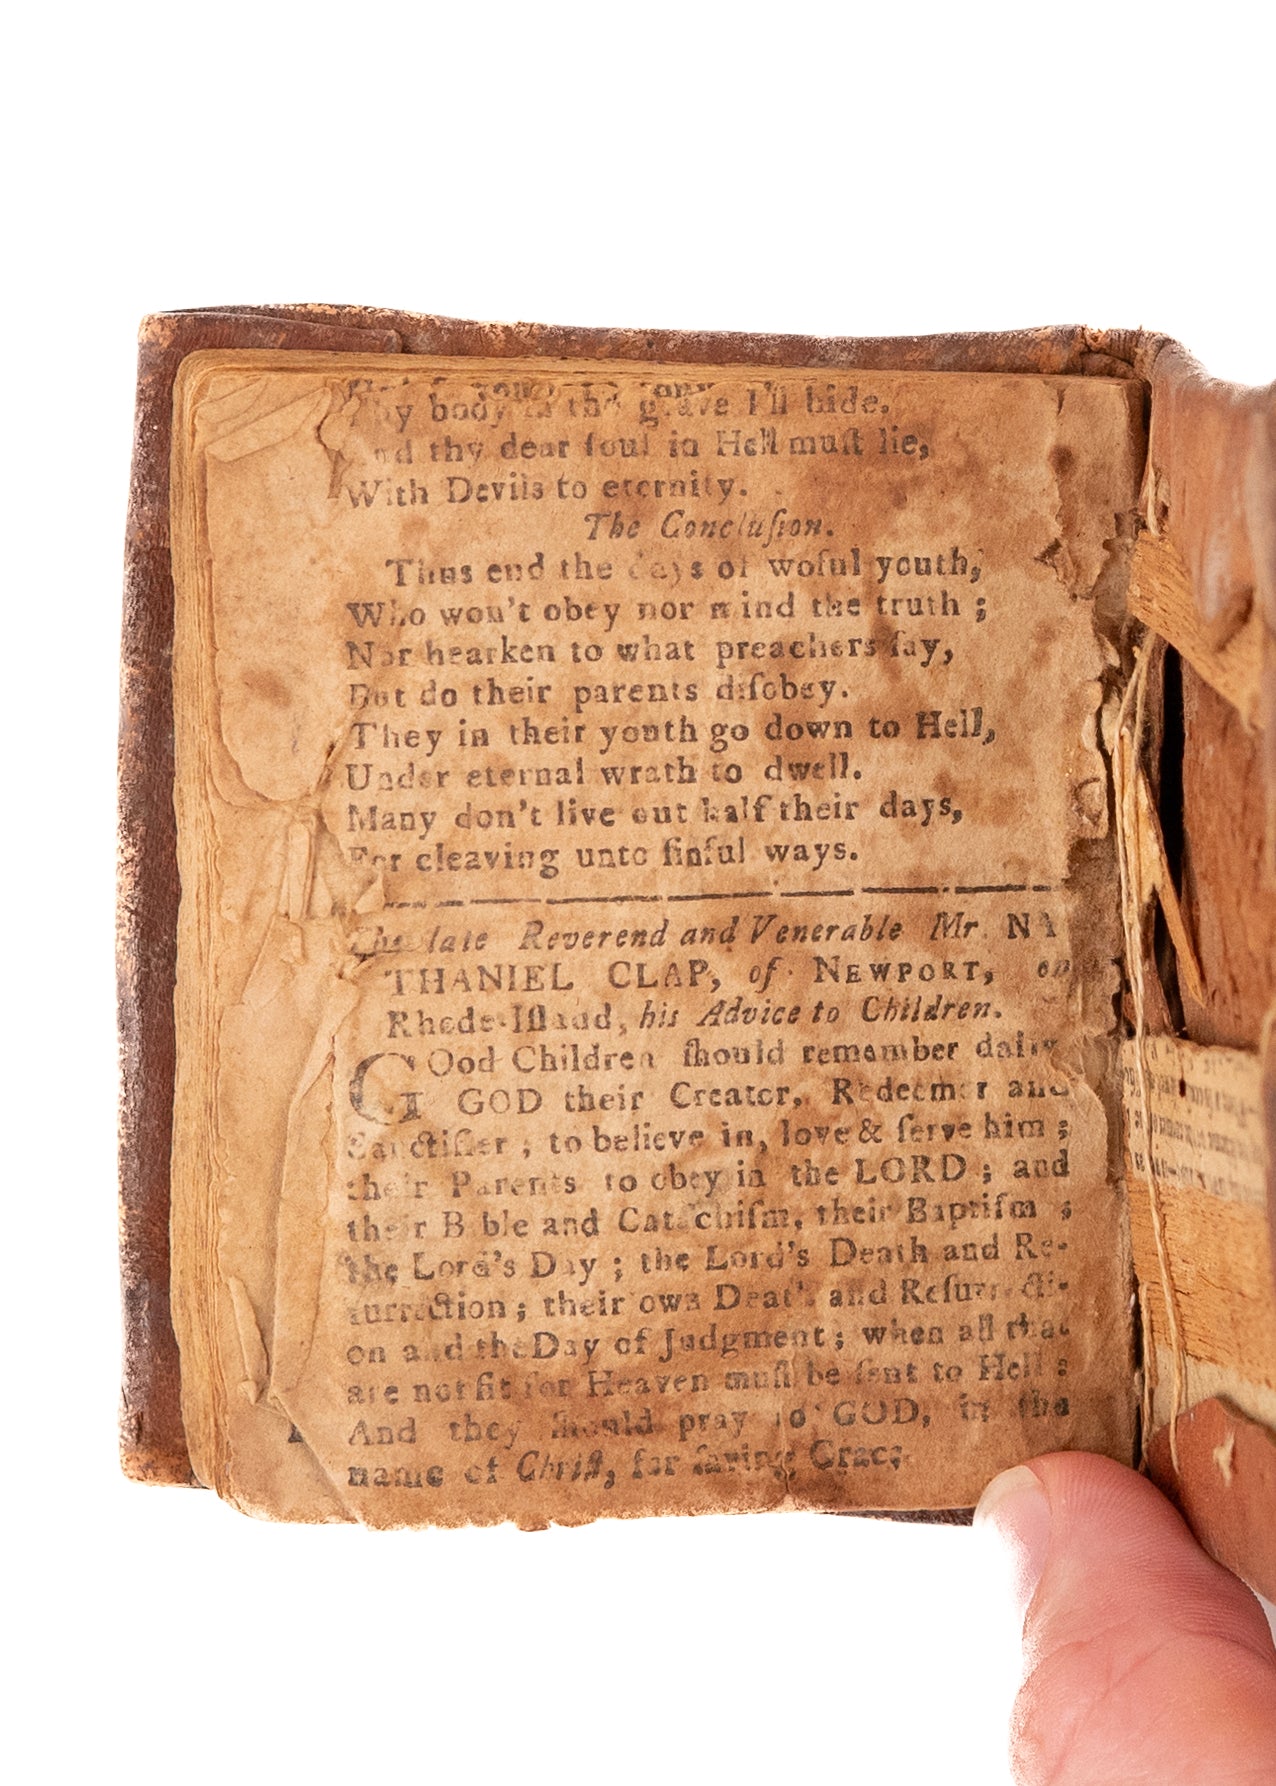 Thy body in the grave I'll hide.
And thy dear ſoul in Hell muſt lie,
With Devils to eternity.
The Concluſion.
Thus end the days of woful youth,
Who won't obey nor mind the truth ;
Nor hearken to what preachers ſay,
But do their parents diſobey.
They in their youth go down to Hell,
Under eternal wrath to dwell.
Many don't live out half their days,
For cleaving unto ſinful ways.
The late Reverend and Venerable Mr. NA
THANIEL CLAP, of NEWPORT, on
Rhode-Iſland, his Advice to Children.
GOod Children ſhould remember daily,
GOD their Creator, Redeemer and
Sanctifier ; to believe in, love & ſerve him ;
their Parents to obey in the LORD ; and
their Bible and Catechiſm, their Baptiſm ;
the Lord's Day ; the Lord's Death and Re-
ſurrection ; their own Death and Reſurrecti-
on and the Day of Judgment ; when all that
are not fit for Heaven muſt be ſent to Hell :
And they ſhould pray to GOD, in the
name of Chriſt, for ſaving Grace.